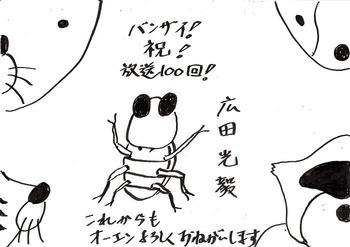 バンザイ!
祝!
放送100回!
広田光毅
これからも
オーエンよろしくおねがいします